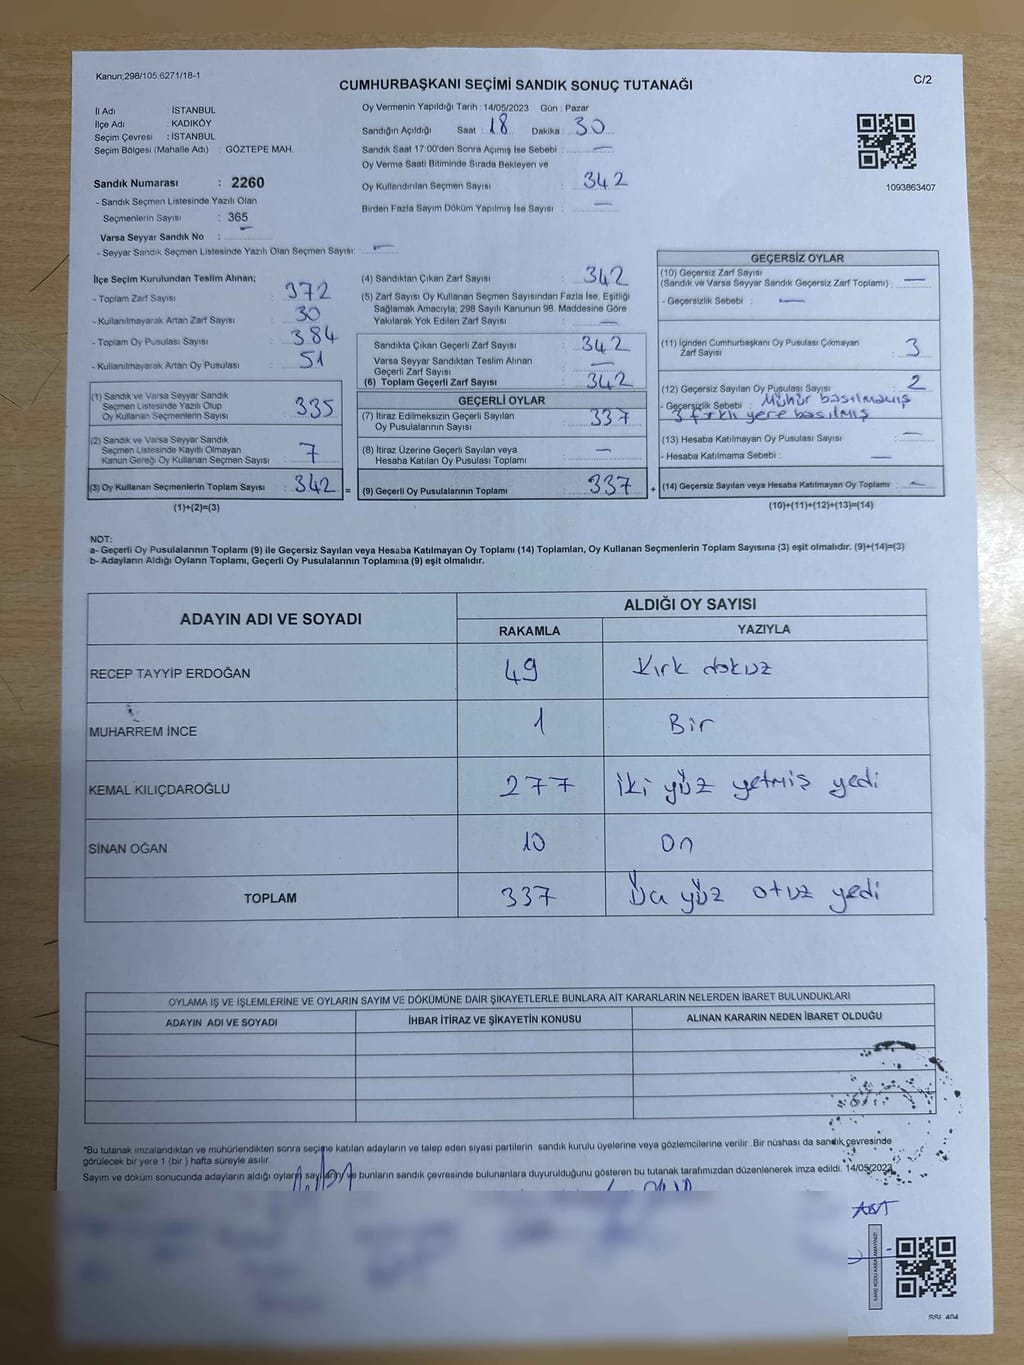 Kanun;298/105;6271/18-1
C/2
CUMHURBAŞKANI SEÇİMİ SANDIK SONUÇ TUTANAĞI
İl Adı : İSTANBUL
İlçe Adı : KADIKÖY
Seçim Çevresi : İSTANBUL
Seçim Bölgesi (Mahalle Adı) : GÖZTEPE MAH.
Sandık Numarası : 2260
- Sandık Seçmen Listesinde Yazılı Olan
Seçmenlerin Sayısı : 365
Varsa Seyyar Sandık No :
- Seyyar Sandık Seçmen Listesinde Yazılı Olan Seçmen Sayısı: —
Oy Vermenin Yapıldığı Tarih : 14/05/2023 Gün : Pazar
Sandığın Açıldığı Saat : 18 Dakika : 30
Sandık Saat 17:00'den Sonra Açımış İse Sebebi : —
Oy Verme Saati Bitiminde Sırada Bekleyen ve
Oy Kullandırılan Seçmen Sayısı : 342
Birden Fazla Sayım Döküm Yapılmış İse Sayısı : —
1093863407
İlçe Seçim Kurulundan Teslim Alınan;
- Toplam Zarf Sayısı : 372
- Kullanılmayarak Artan Zarf Sayısı : 30
- Toplam Oy Pusulası Sayısı : 384
- Kullanılmayarak Artan Oy Pusulası : 51
(1) Sandık ve Varsa Seyyar Sandık
Seçmen Listesinde Yazılı Olup
Oy Kullanan Seçmenlerin Sayısı : 335
(2) Sandık ve Varsa Seyyar Sandık
Seçmen Listesinde Kayıtlı Olmayan
Kanun Gereği Oy Kullanan Seçmen Sayısı : 7
(3) Oy Kullanan Seçmenlerin Toplam Sayısı : 342 =
(1)+(2)=(3)
(4) Sandıktan Çıkan Zarf Sayısı : 342
(5) Zarf Sayısı Oy Kullanan Seçmen Sayısından Fazla İse, Eşitliği
Sağlamak Amacıyla; 298 Sayılı Kanunun 98. Maddesine Göre
Yakılarak Yok Edilen Zarf Sayısı : —
Sandıkta Çıkan Geçerli Zarf Sayısı : 342
Varsa Seyyar Sandıktan Teslim Alınan
Geçerli Zarf Sayısı : —
(6) Toplam Geçerli Zarf Sayısı : 342
GEÇERLİ OYLAR
(7) İtiraz Edilmeksizin Geçerli Sayılan
Oy Pusulalarının Sayısı : 337
(8) İtiraz Üzerine Geçerli Sayılan veya
Hesaba Katılan Oy Pusulası Toplamı : —
(9) Geçerli Oy Pusulalarının Toplamı : 337 +
GEÇERSİZ OYLAR
(10) Geçersiz Zarf Sayısı
(Sandık ve Varsa Seyyar Sandık Geçersiz Zarf Toplamı) : —
- Geçersizlik Sebebi : —
(11) İçinden Cumhurbaşkanı Oy Pusulası Çıkmayan
Zarf Sayısı : 3
(12) Geçersiz Sayılan Oy Pusulası Sayısı : 2
- Geçersizlik Sebebi : Mühür basılmamış
3 farklı yere basılmış
(13) Hesaba Katılmayan Oy Pusulası Sayısı : —
- Hesaba Katılmama Sebebi : —
(14) Geçersiz Sayılan veya Hesaba Katılmayan Oy Toplamı : —
(10)+(11)+(12)+(13)=(14)
NOT:
a- Geçerli Oy Pusulalarının Toplamı (9) ile Geçersiz Sayılan veya Hesaba Katılmayan Oy Toplamı (14) Toplamları, Oy Kullanan Seçmenlerin Toplam Sayısına (3) eşit olmalıdır. (9)+(14)=(3)
b- Adayların Aldığı Oyların Toplamı, Geçerli Oy Pusulalarının Toplamına (9) eşit olmalıdır.
ADAYIN ADI VE SOYADI
ALDIĞI OY SAYISI
RAKAMLA YAZIYLA
RECEP TAYYİP ERDOĞAN 49 Kırk dokuz
MUHARREM İNCE 1 Bir
KEMAL KILIÇDAROĞLU 277 iki yüz yetmiş yedi
SİNAN OĞAN 10 On
TOPLAM 337 Üç yüz otuz yedi
OYLAMA İŞ VE İŞLEMLERİNE VE OYLARIN SAYIM VE DÖKÜMÜNE DAİR ŞİKAYETLERLE BUNLARA AİT KARARLARIN NELERDEN İBARET BULUNDUKLARI
ADAYIN ADI VE SOYADI İHBAR İTİRAZ VE ŞİKAYETİN KONUSU ALINAN KARARIN NEDEN İBARET OLDUĞU
*Bu tutanak imzalandıktan ve mühürlendikten sonra seçime katılan adayların ve talep eden siyasi partilerin sandık kurulu üyelerine veya gözlemcilerine verilir .Bir nüshası da sandık çevresinde
görülecek bir yere 1 (bir ) hafta süreyle asılır.
Sayım ve döküm sonucunda adayların aldığı oyların sayılarını ve bunların sandık çevresinde bulunanlara duyurulduğunu gösteren bu tutanak tarafımızdan düzenlenerek imza edildi. 14/05/2023
KARE KODU KARALAMAYINIZ!